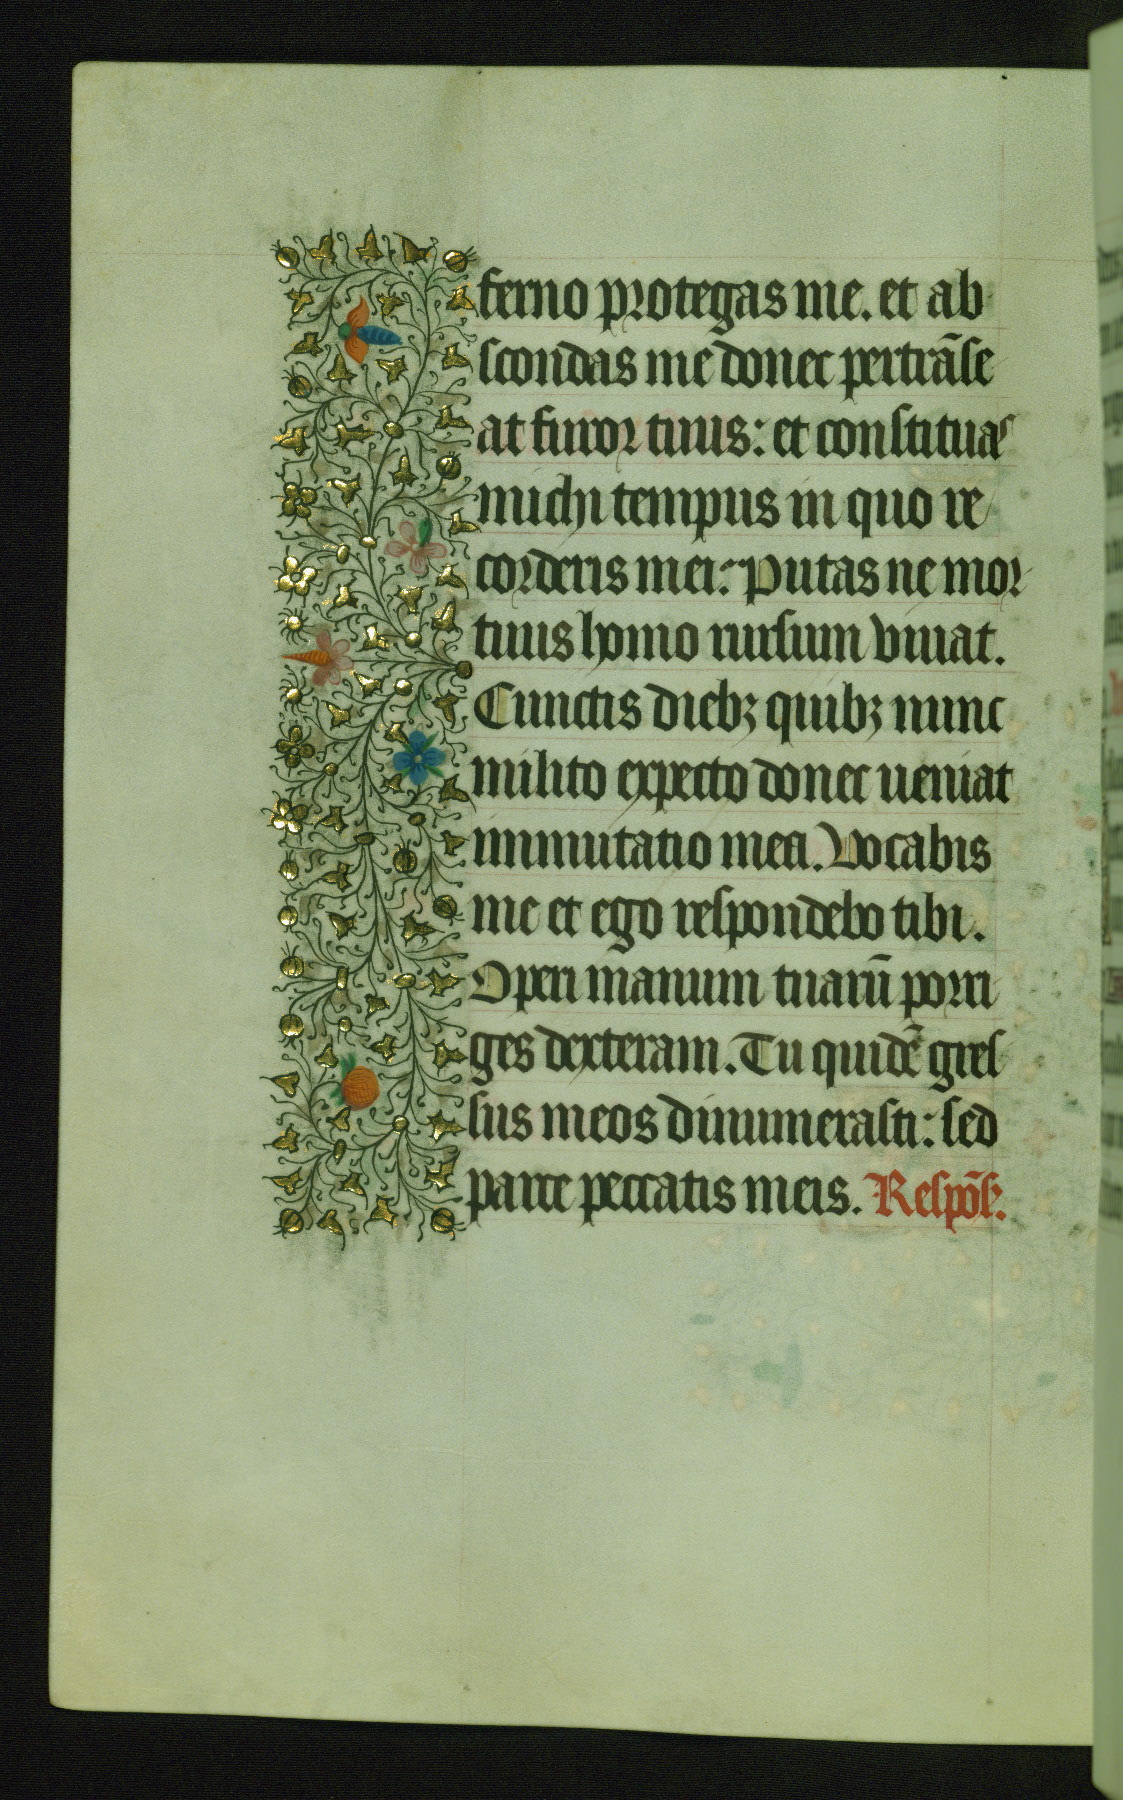 ferno protegas me. et ab
scondas me donec pertrāse
at furor tuus: et constituas
michi tempus in quo re
corderis mei: Putas ne mor
tuus homo rursum viuat.
Cunctis diebꝫ quibꝫ nunc
milito expecto donec ueniat
immutatio mea. Vocabis
me et ego respondebo tibi.
Operi manuum tuarū porri
ges dexteram. Tu quidē gres
sus meos dinumerasti: sed
parce peccatis meis. Respōs.